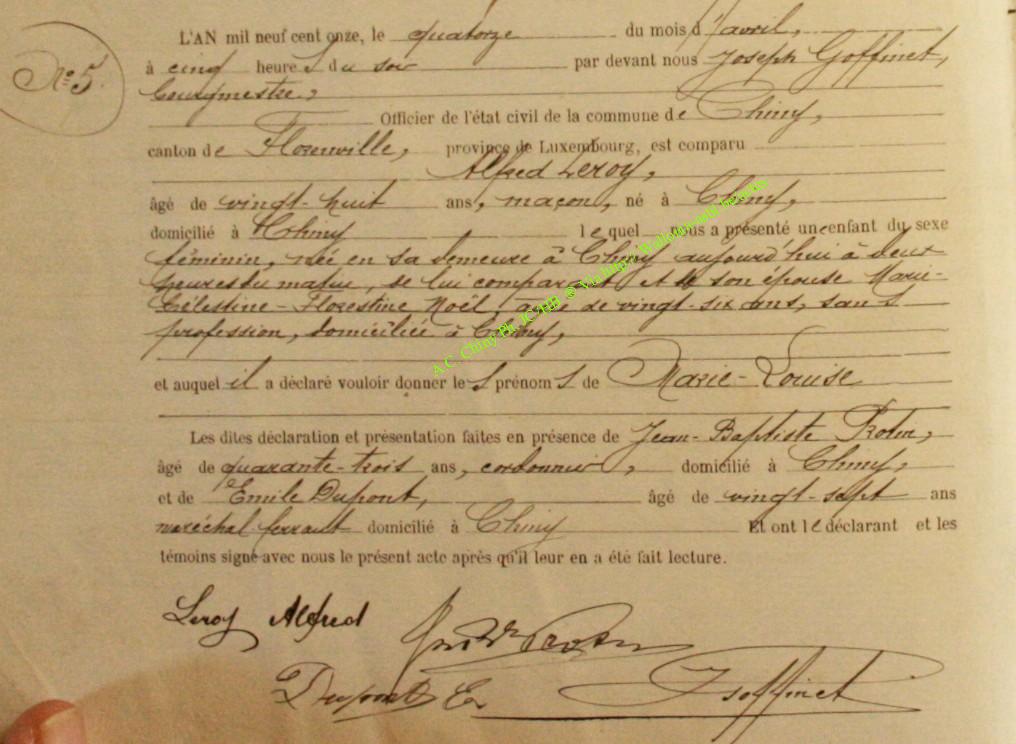 L'AN mil neuf cent onze, le quatorze du mois d'avril,
N° 5.
à cinq heures du soir par devant nous Joseph Goffinet,
bourgmestre,
Officier de l'état civil de la commune de Chiny,
canton de Florenville, province de Luxembourg, est comparu
Alfred Leroy,
âgé de vingt-huit ans, maçon, né à Chiny,
domicilié à Chiny lequel nous a présenté un enfant du sexe
féminin, née en sa demeure à Chiny aujourd'hui à deux
heures du matin, de lui comparant et de son épouse Marie-
Célestine-Florestine Noël, agée de vingt-six ans, sans
profession, domiciliée à Chiny,
et auquel il a déclaré vouloir donner les prénoms de Marie-Louise
Les dites déclaration et présentation faites en présence de Jean-Baptiste
âgé de quarante-trois ans, cordonnier, domicilié à Chiny,
et de Emile Dupont, âgé de vingt-sept ans
maréchal-ferrant domicilié à Chiny Et ont le déclarant et les
témoins signé avec nous le présent acte après qu'il leur en a été fait lecture.
Leroy Alfred
Dupont E J Goffinet